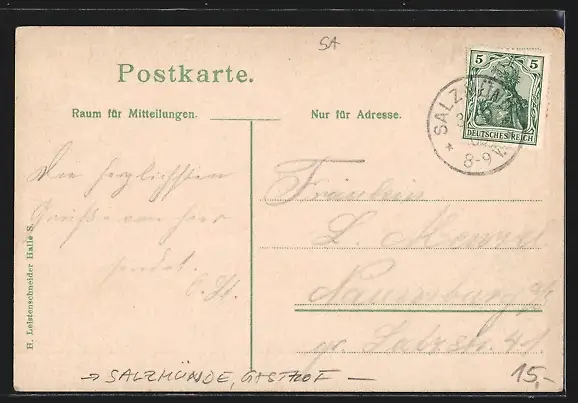 SA
Postkarte.
Raum für Mitteilungen.
Nur für Adresse.
5 5
DEUTSCHES REICH
SALZMÜNDE
8-9 V.
Die herzlichsten
Grüße von hier
sendet
Fräulein
L.
Naumburg a/S
gr.
H. Leistenschneider Halle S.
→ SALZMÜNDE, GASTHOF —
15,-